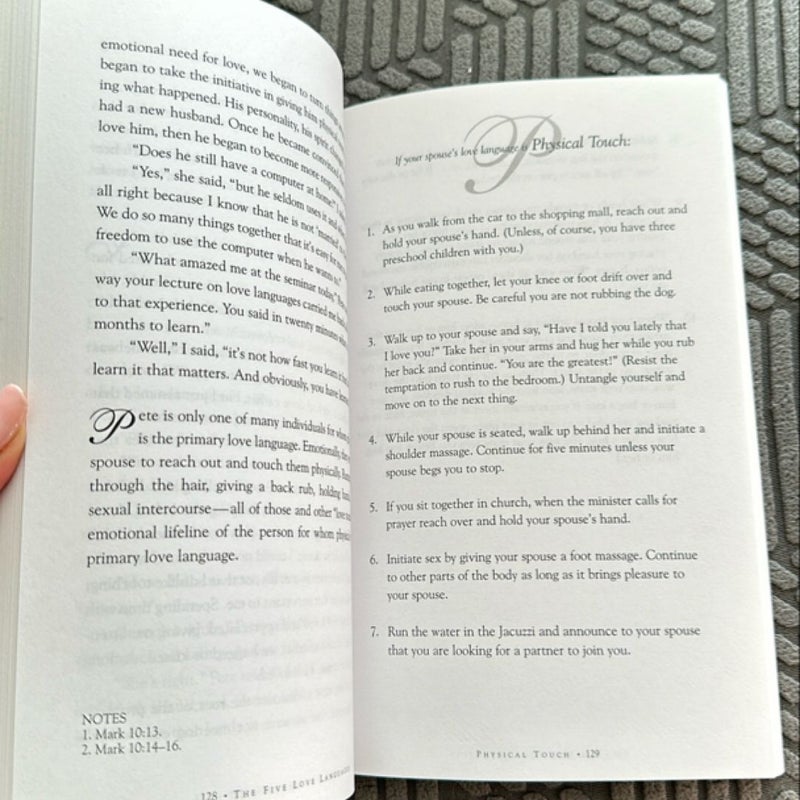 emotional need for love, we began to turn
began to take the initiative in giving him
ing what happened. His personality, his spirit
had a new husband. Once he became convinced
love him, then he began to become more
“Does he still have a computer at home?” I
“Yes,” she said, “but he seldom uses it and
all right because I know that he is not ‘married
We do so many things together that it’s easy for
freedom to use the computer when he wants to.”
“What amazed me at the seminar today,”
way your lecture on love languages carried me
to that experience. You said in twenty minutes
months to learn.”
“Well,” I said, “it’s not how fast you learn it
learn it that matters. And obviously, you have
Pete is only one of many individuals for
is the primary love language. Emotionally,
spouse to reach out and touch them physically.
through the hair, giving a back rub, holding
sexual intercourse—all of those and other “love
emotional lifeline of the person for whom
primary love language.
NOTES
1. Mark 10:13.
2. Mark 10:14–16.
128 • THE FIVE LOVE LANGUAGES
If your spouse’s love language is Physical Touch:
1. As you walk from the car to the shopping mall, reach out and
hold your spouse’s hand. (Unless, of course, you have three
preschool children with you.)
2. While eating together, let your knee or foot drift over and
touch your spouse. Be careful you are not rubbing the dog.
3. Walk up to your spouse and say, “Have I told you lately that
I love you?” Take her in your arms and hug her while you rub
her back and continue. “You are the greatest!” (Resist the
temptation to rush to the bedroom.) Untangle yourself and
move on to the next thing.
4. While your spouse is seated, walk up behind her and initiate a
shoulder massage. Continue for five minutes unless your
spouse begs you to stop.
5. If you sit together in church, when the minister calls for
prayer reach over and hold your spouse’s hand.
6. Initiate sex by giving your spouse a foot massage. Continue
to other parts of the body as long as it brings pleasure to
your spouse.
7. Run the water in the Jacuzzi and announce to your spouse
that you are looking for a partner to join you.
PHYSICAL TOUCH • 129